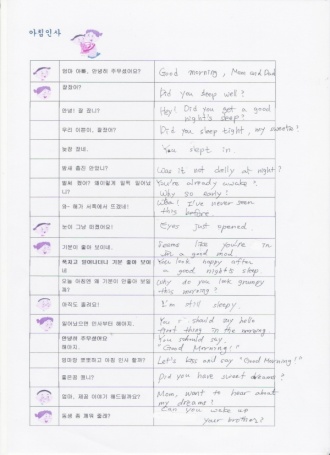 아침인사
엄마 아빠, 안녕히 주무셨어요?
Good morning, Mom and Dad
잘잤어?
Did you sleep well?
안녕! 잘 잤니?
Hey! Did you get a good
night's sleep?
우리 이쁜이, 잘잤어?
Did you sleep tight, my sweetie?
늦잠 잤네.
You slept in.
밤새 춥진 않았니?
Was it not chilly at night?
벌써 깼어? 왜이렇게 일찍 일어났
니?
You're already awake?
Why so early!
와- 해가 서쪽에서 뜨겠네!
Wow! I've never seen
this before
눈이 그냥 떠졌어요!
Eyes just opened.
기분이 좋아 보이네.
Seems like you're in
a good mood.
푹자고 일어나더니 기분 좋아 보이
네
You look happy after
a good night's sleep
오늘 아침엔 왜 기분이 안좋아 보일
까?
Why do you look grumpy
this morning?
아직도 졸려요!
I'm still sleepy.
일어났으면 인사부터 해야지.
You should say hello
first thing in the morning
안녕히 주무셨어요
해야지.
You should say,
"Good Morning!"
엄마랑 뽀뽀하고 아침 인사 할까?
Let's kiss and say "Good Morning!"
좋은꿈 꿨니?
Did you have sweet dreams?
엄마, 제꿈 이야기 해드릴까요?
Mom, want to hear about
my dreams?
동생 좀 깨워 줄래?
Can you wake up
your brother?